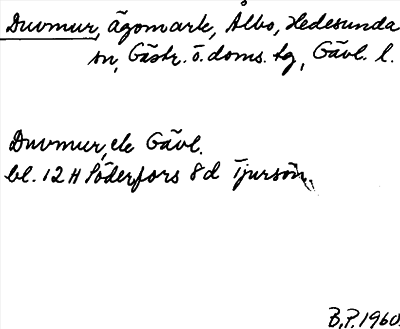 Duvmur, ägomark, Ålbo, Hedesunda
sn, Gästr. ö. doms. tg, Gävl. l.
Duvmur, ek Gävl.
bl. 12 H Söderfors 8 d Tjursön,
B.P. 1960.